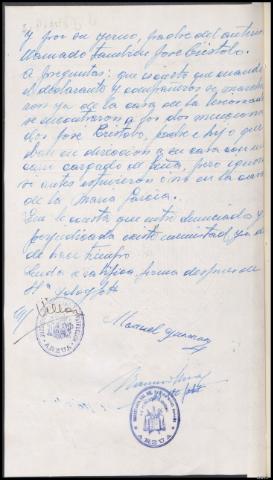 y por su yerno, padre del anterior
llamado también José Cristobo.
A preguntas: que es cierto que cuando
el declarante y compañeros se marcha
ron ya de la casa de la lesionada
se encontraron a los dos menciona
dos José Cristobo, padre e hijo que
iban en dirección a su casa con un
carro cargado de leña, pero ignora
si antes estuvieron o no en la casa
de la María García.
Que le consta que entre denunciados y
perjudicada existe enemistad ya
de hace tiempo
Leida se ratifica, firma despues de
Sª doy fe
Manuel
ARZUA
ARZUA